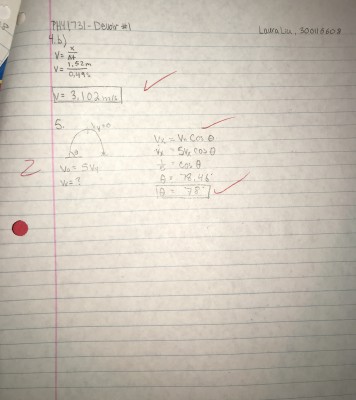 PHY1731 - Devoir #1
Laura Liu,
4. b)
V = x/Δt
V = 1,52m/0,49s
V = 3,102 m/s
5.
Vy=0
θ
2
V₀ = 5Vx
Vx = ?
Vx = V₀ cos θ
Vx = 5Vx cos θ
1/5 = cos θ
θ = 78,46°
θ = 78°